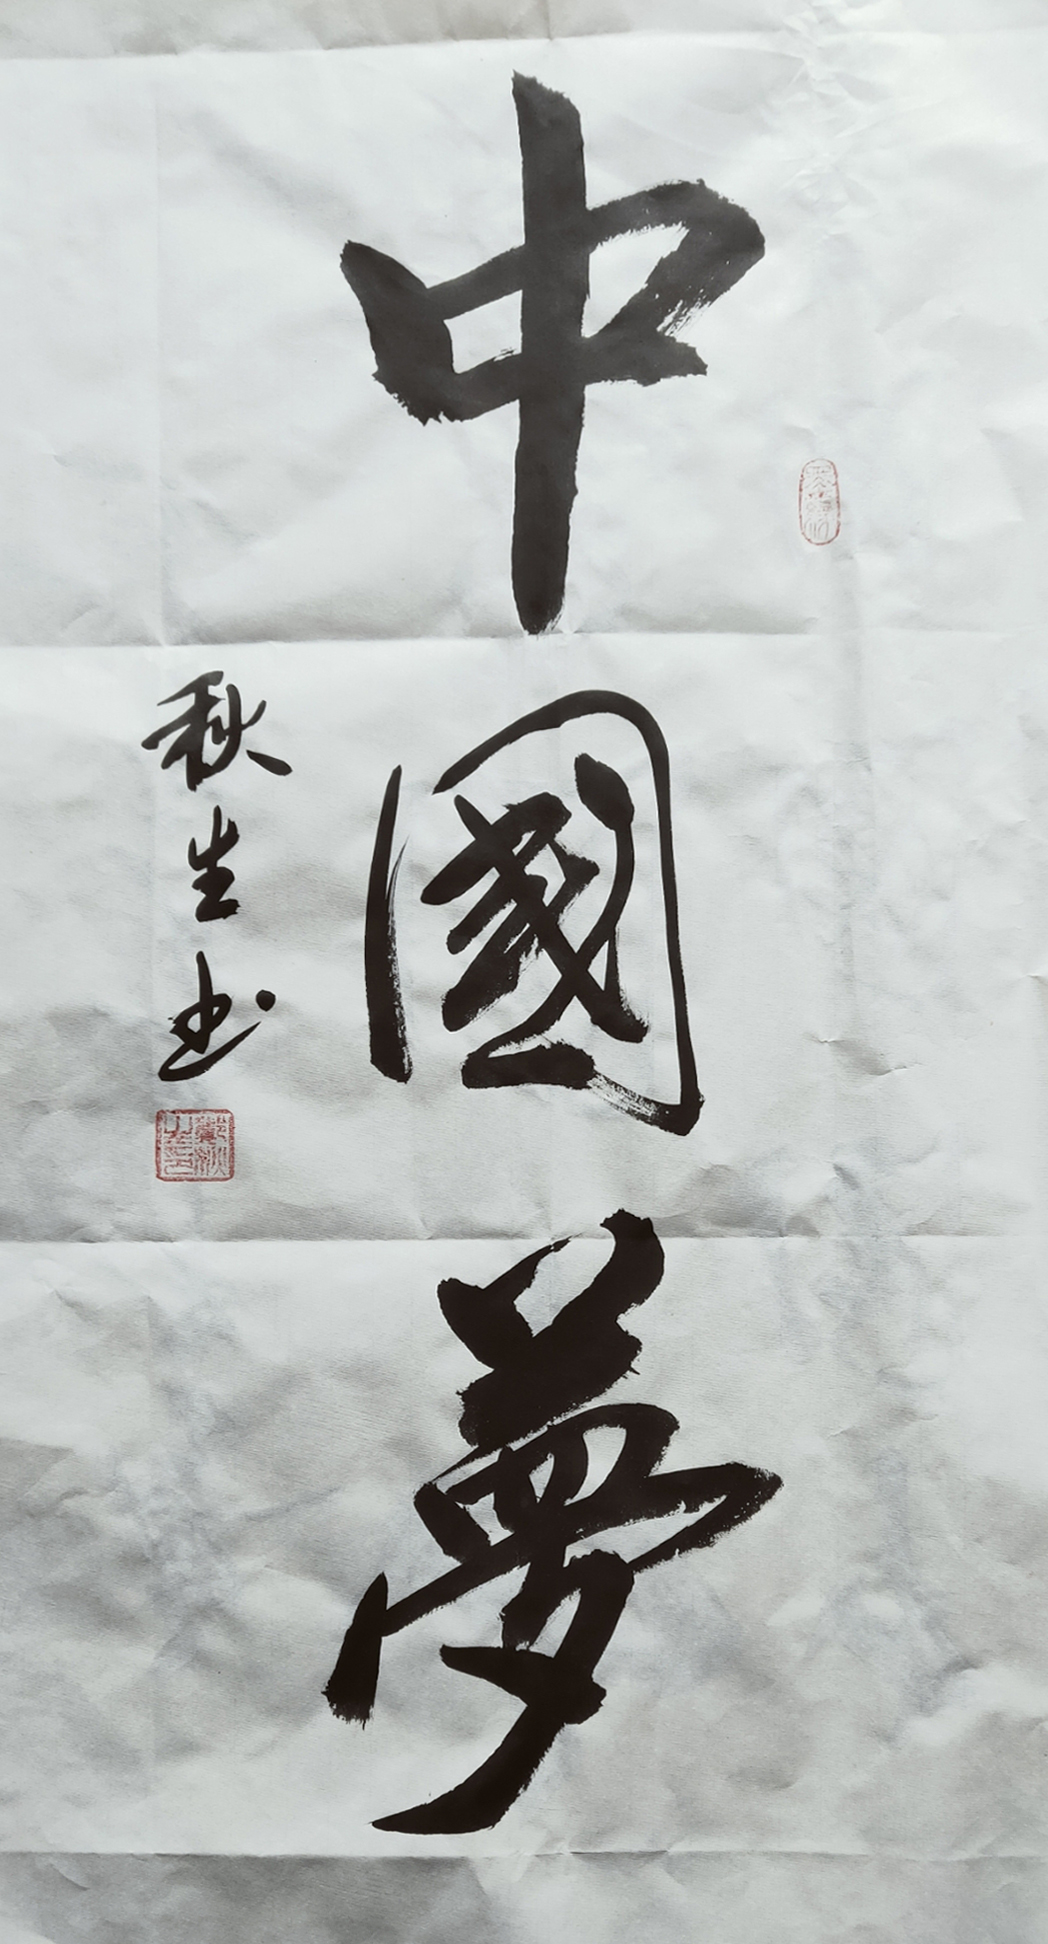 中國夢
秋生书